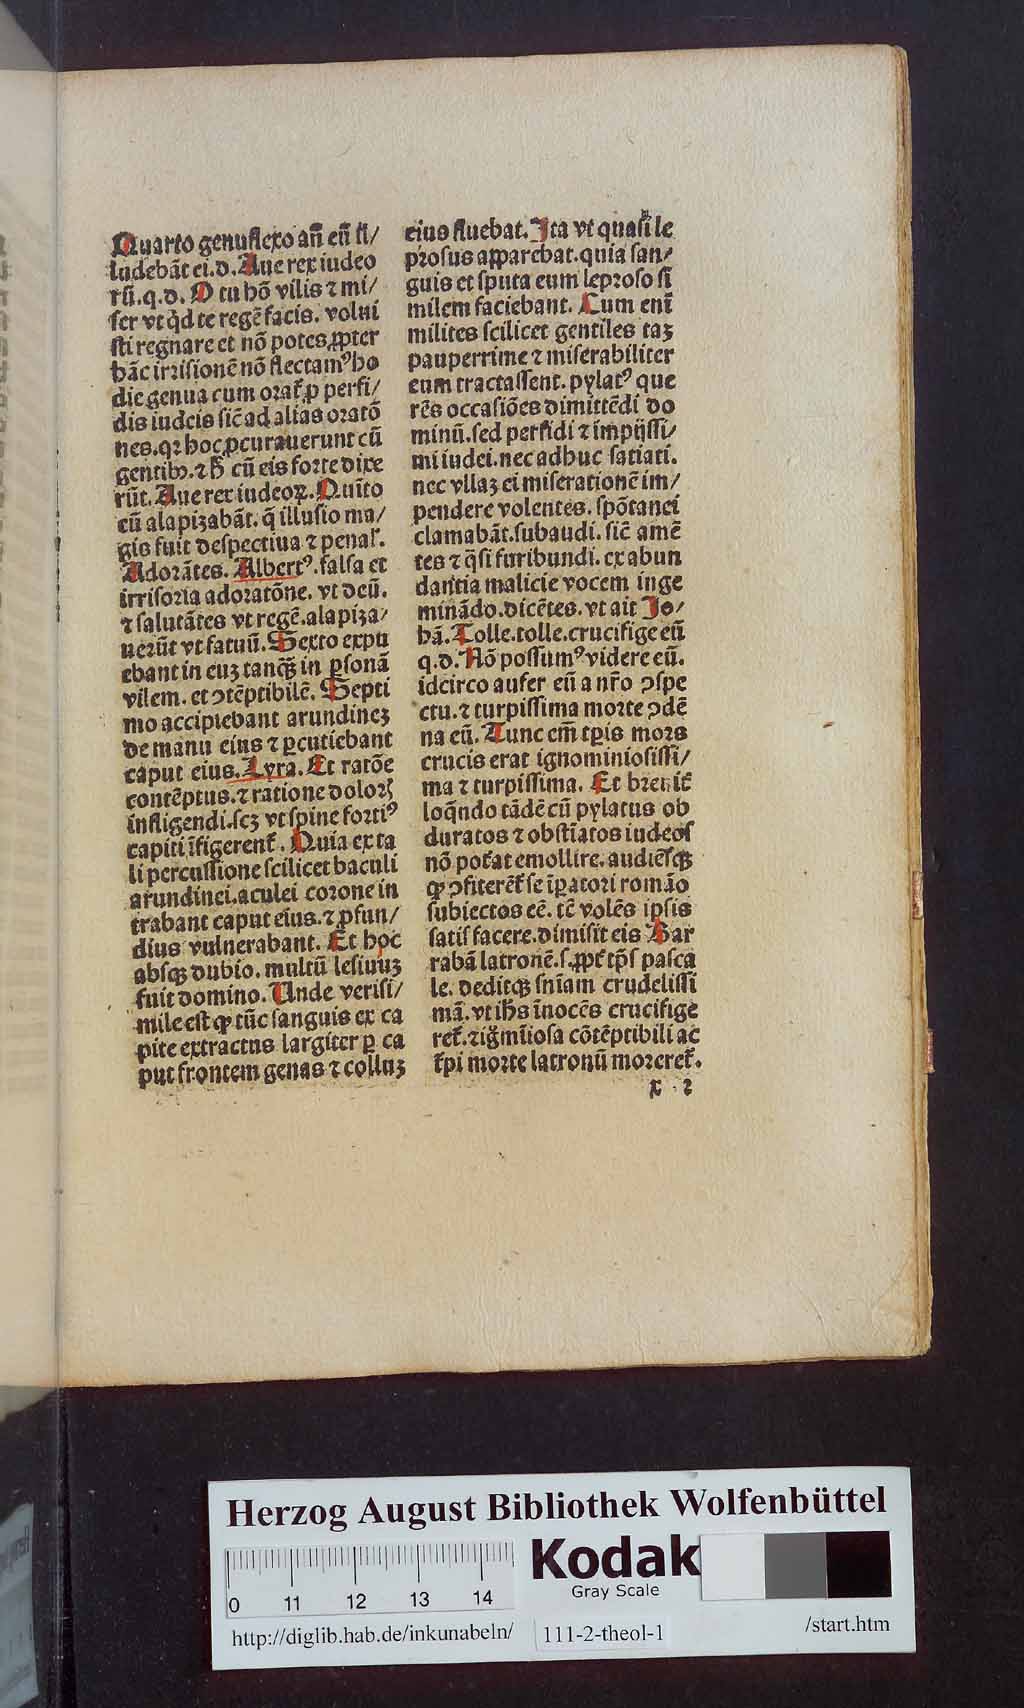 Quarto genuflexo an̄ eū il/
ludebāt ei.d. Aue rex iudeo
rū.q.d. O tu hō vilis ⁊ mi/
ser vt qd te regē facis. volui
sti regnare et nō potes. ꝓpter
hāc irrisionē nō flectamꝰ ho
die genua cum orat̄ ꝓ perfi/
dis iudeis sic̄ ad alias oratō
nes. qꝛ hoc ꝓcurauerunt cū
gentibꝰ. ⁊ h̄ cū eis forte dixe
rūt. Aue rex iudeoꝝ. Quīto
eū alapizabāt. q̄ illusio ma/
gis fuit despectiua ⁊ penal̕.
Adorātes. Albertꝰ. falsa et
irrisoria adoratōne. vt deū.
⁊ salutātes vt regē. alapiza/
uerūt vt fatuū. Sexto expu
ebant in euꝫ tanqꝫ in ꝑsonā
vilem. et ↄtēptibilē. Septi
mo accipiebant arundineꝫ
de manu eius ⁊ ꝑcutiebant
caput eius. Lyra. Et ratōe
contēptus. ⁊ ratione doloꝝ
infligendi. scꝫ vt spine fortiꝰ
capiti īfigerent̄. Quia ex ta
li percussione scilicet baculi
arundinei. aculei corone in
trabant caput eius. ⁊ ꝓfun/
dius vulnerabant. Et hoc
absqꝫ dubio. multū lesiuuꝫ
fuit domino. Unde verisi/
mile est ꝙ tūc sanguis ex ca
pite extractus largiter ꝑ ca
put frontem genas ⁊ colluꝫ
eius fluebat. Ita vt quasi le
prosus apparebat. quia san/
guis et sputa eum leproso si
milem faciebant. Cum eni
milites scilicet gentiles taꝫ
pauperrime ⁊ miserabiliter
eum tractassent. pylatꝰ que
rēs occasiōes dimittēdi do
minū. sed perfidi ⁊ impijssi/
mi iudei. nec adhuc satiati.
nec vllaꝫ ei miserationē im/
pendere volentes. spōtanei
clamabāt. subaudi. sic̄ amē
tes ⁊ q̄si furibundi. ex abun
dantia malicie vocem inge
minādo. dicētes. vt ait Jo/
hā. Tolle. tolle. crucifige eū
q.d. Nō possumꝰ videre eū.
idcirco aufer eū a nr̄o ↄspe
ctu. ⁊ turpissima morte ↄdē
na eū. Tunc em̄ tꝑis mors
crucis erat ignominiosissi/
ma ⁊ turpissima. Et breuit̄
loq̄ndo tādē cū pylatus ob
duratos ⁊ obstīatos iudeos
nō pot̄at emollire. audiēsqꝫ
ꝙ ↄfiterēt̄ se īꝑatori romāo
subiectos eē. tē volēs ipsis
satis facere. dimisit eis Bar
rabā latronē. s. ꝓpt̄ tp̄s pasca
le. deditqꝫ sn̄iam crudelissi
mā. vt ih̄s īnocēs crucifige
ret̄. ⁊ iḡmīiosa cōtēptibili ac
t̄pi morte latronū moreret̄.
x 2
Herzog August Bibliothek Wolfenbüttel
Kodak
Gray Scale
0 11 12 13 14
http://diglib.hab.de/inkunabeln/
111-2-theol-1
/start.htm